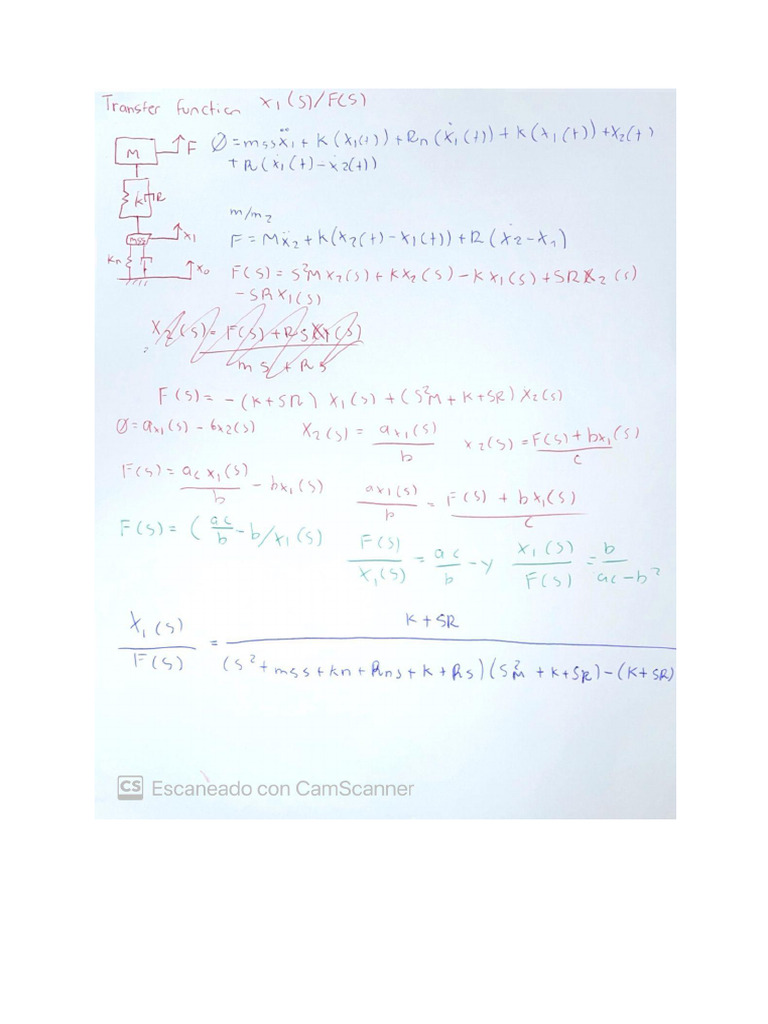 Transfer function X₁(S)/F(S)
M F
∅=mssẍ₁+K(X₁(t))+Rn(Ẋ₁(t))+K(X₁(t))+X₂(t)
+R(ẋ₁(t)-ẋ2(t))
K R
mss X₁
Kn X₀
m/m₂
F=Mẍ₂+K(x₂(t)-X₁(t))+R(ẋ2-X₁)
F(S)=S²MX₂(S)+KX₂(S)-KX₁(S)+SRX₂(S)
-SRX₁(S)
X₂(S)=F(S)+RSX₁(S)
mS+RS
F(S)=-(K+SR)X₁(S)+(S²M+K+SR)X₂(S)
∅=ax₁(S)-bx2(S) X₂(S)=ax₁(S)/b x2(S)=F(S)+bx₁(S)/c
F(S)=acx₁(S)/b-bx₁(S) ax₁(S)/b=F(S)+bx₁(S)/c
F(S)=(ac/b-b/x₁(S) F(S)/X₁(S)=ac/b-y X₁(S)/F(S)=b/ac-b²
X₁(S)/F(S)=K+SR/(S²+mss+kn+Rns+K+Rs)(S²M+K+SR)-(K+SR)
CS Escaneado con CamScanner